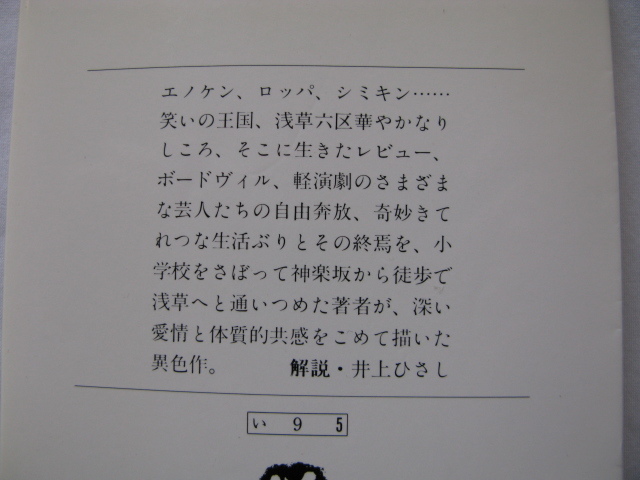 エノケン、ロッパ、シミキン……
笑いの王国、浅草六区華やかなり
しころ、そこに生きたレビュー、
ボードヴィル、軽演劇のさまざま
な芸人たちの自由奔放、奇妙きて
れつな生活ぶりとその終焉を、小
学校をさぼって神楽坂から徒歩で
浅草へと通いつめた著者が、深い
愛情と体質的共感をこめて描いた
異色作。 解説・井上ひさし
い 9 5